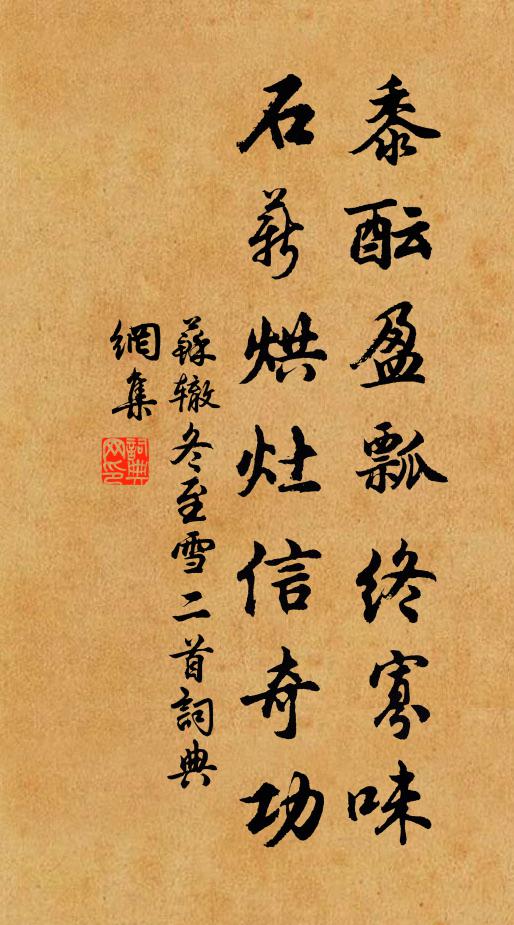 黍酝盈瓢终寡味
石薪烘灶信奇功
蘇辙冬至雪二首詞典
網集
詞典
网印